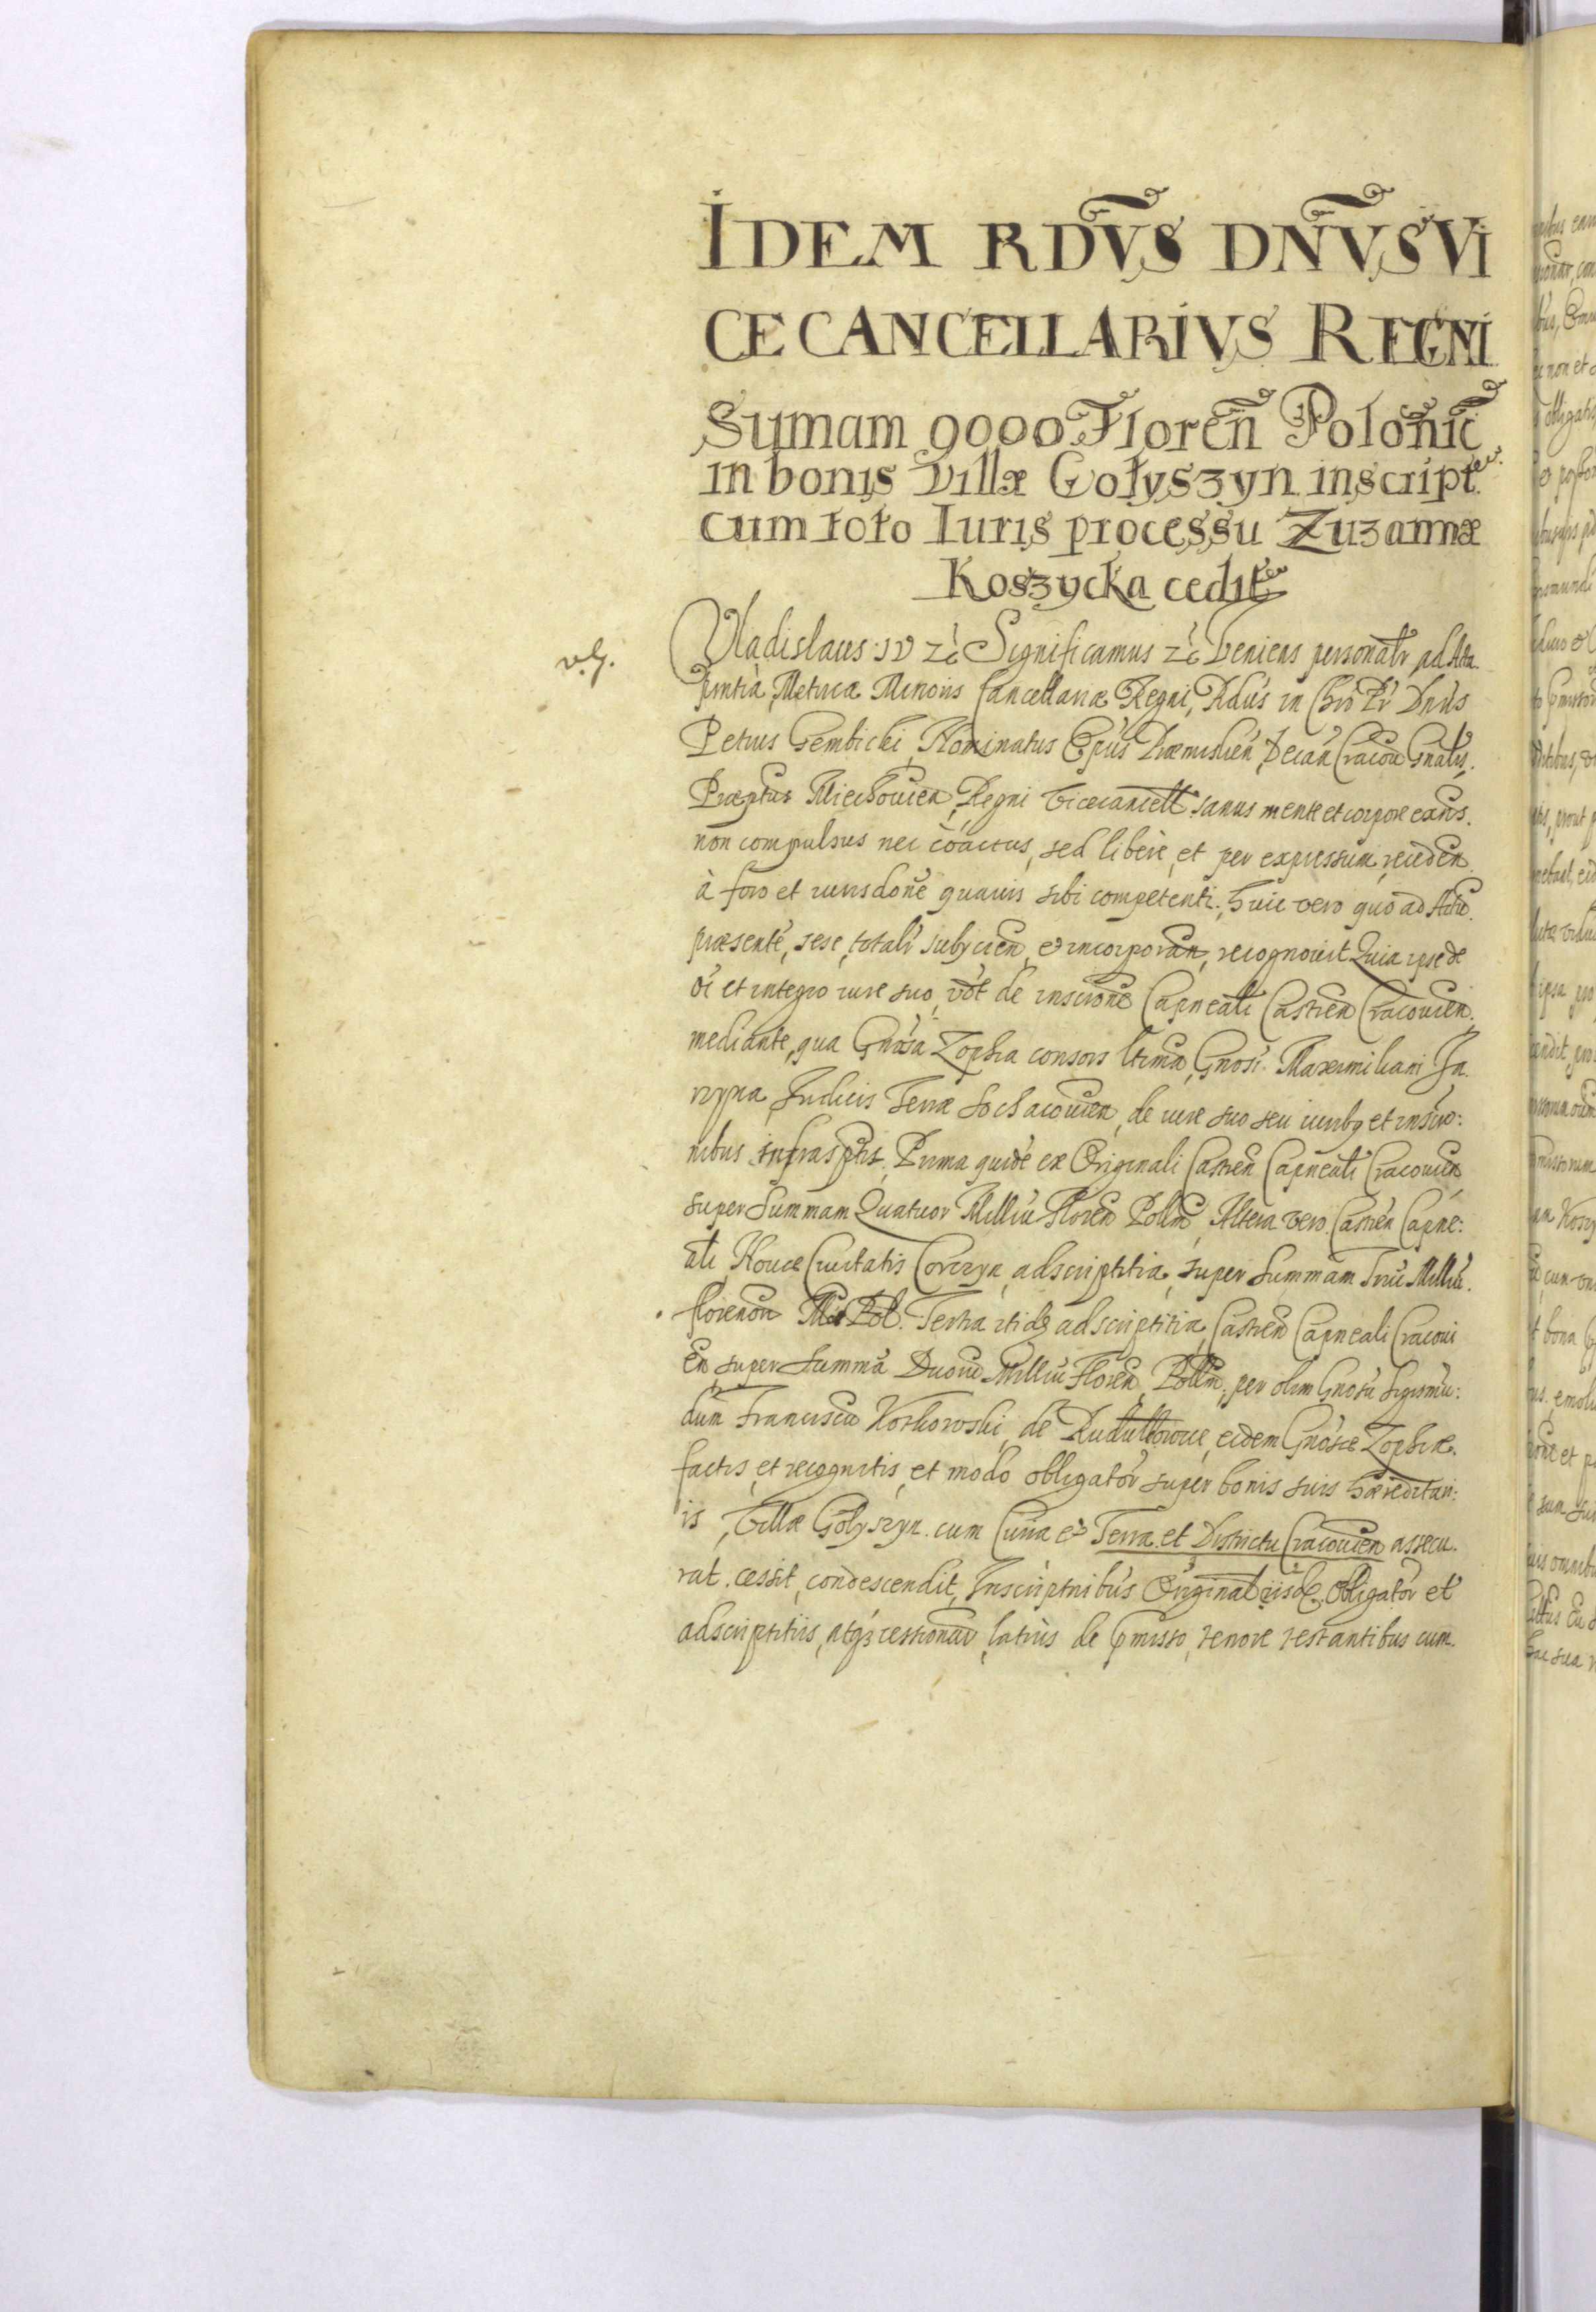 IDEM RDVS DNVS VI
CECANCELLARIVS REGNI
Sumam 9000 Floren̄ Polonic̄
in bonis Villæ Gołyszyn inscript.
cum toto Iuris processu Zuzannæ
Koszycka cedit
Vladislaus IV zc̀ Significamus zc̀ Veniens personalr̄ ad Acta
pn̄tia Metricæ Minoris Cancellariæ Regni, Rdūs in Chrō Pr̄ Dnūs
Petrus Gembicki, Nominatus Ep̄us Præmislien̄, Decan̄ Cracou Gn̄alis,
Præptus Miechouien, Regni Vicecancell. sanus mente et corpore exn̄s.
non compulsus nec coactus, sed libere, et per expressum, receden̄
à foro et iurisdōne quauis sibi competenti, huic vero quō ad Actū
præsentē, sese, totalr̄ subycien, et incorporan, recognouit Quia ipse de
oī et integro iure suo, vōt de inscrōne Capneali Castren Cracouien.
mediante, qua Gn̄osa Zophia consors ltima, Gnosi. Maximiliani Ja
rzyna, Judicis Terræ Sochacouien, de iure suo seu iuribq et inscrio:
nibus infrasptis. Prima quidē ex Originali Castren Capneali Cracouien
super Summam Quatuor Milliū Floren Pollin, Altera vero Castren Capne:
ali, Nouæ Ciuitatis Corczyn, adscriptitia, super Summam Triū Milliū.
florenon Mo Pol. Tertia itidq adscriptitia, Castren Capneali Cracoui
en, super Summā Duorū Milliū Floren, Pollin, per olim Gnosū Sigismū:
dūm Franciscū Korkowski, de eidem Gnosæ Zophiæ.
factis, et recognitis, et modo obligatōr super bonis suis hæreditari:
is, Villæ Gołyszyn. cum Curia et Terra et Districtu Cracouien assecu.
rat. cessit, condescendit, Inscriptnibus Original iisdē. Obligatōr et
adscriptitiis, atq3 cessionūr, latiūs de p̄misso, tenore restantibus cum.